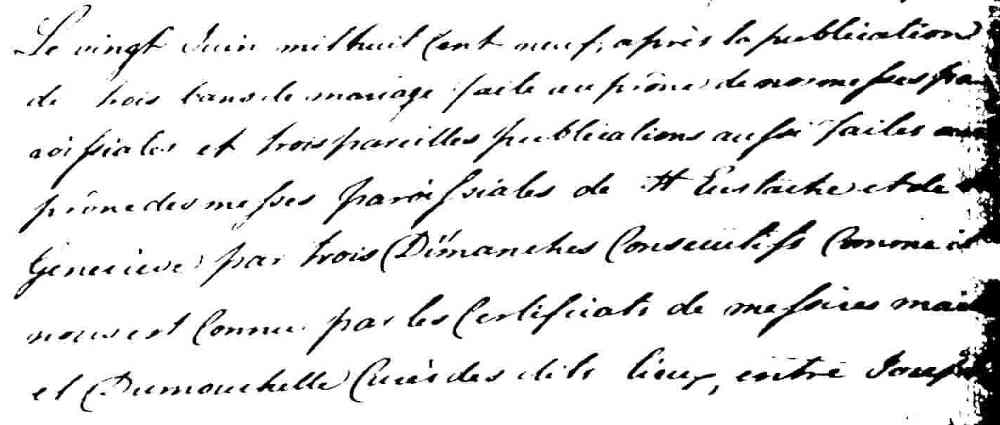 Le vingt Juin mil huit Cent neuf, après la publication
de trois bans de mariage faite au prône de nos messes pa
roissiales et trois pareilles publications aussi faites au
prône des messes paroissiales de St Eustache et de
Genevieve par trois Dimanches Consecutifs Comme il
nous est Connu par les Certificats de messires
et Dumouchelle Curés des dits lieux, entre Joseph